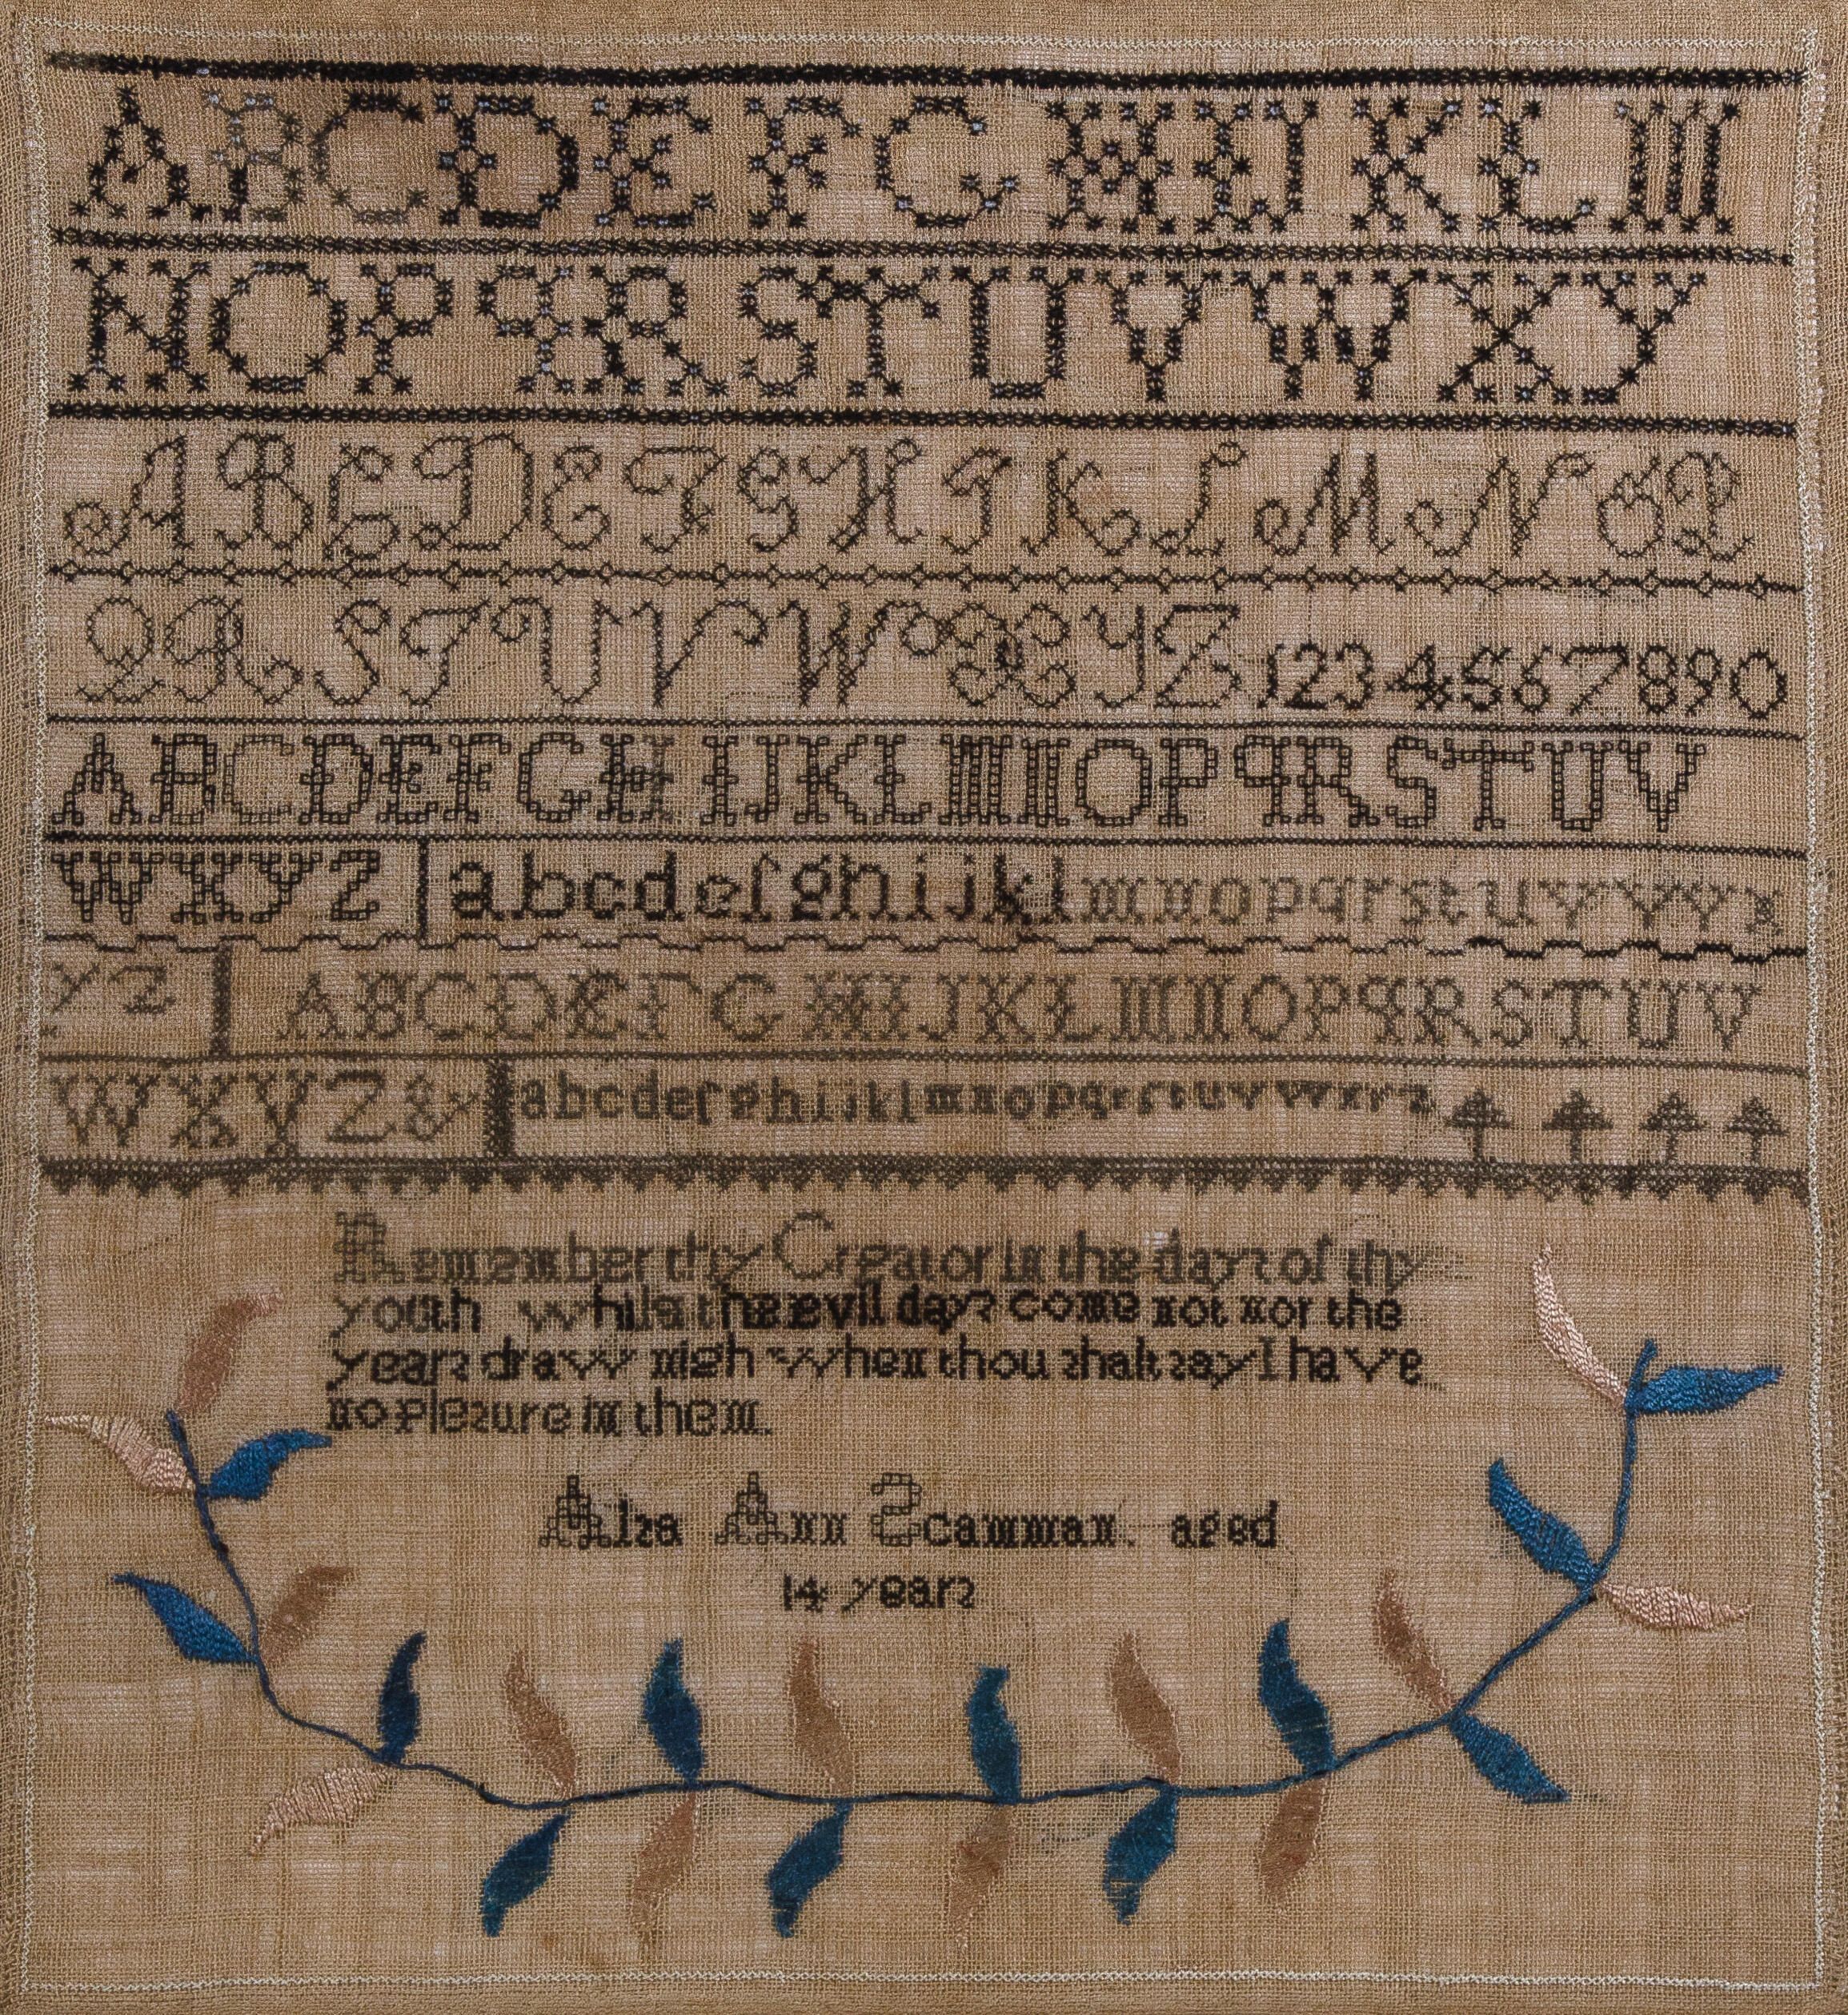 ABCDEFGHIJKLM
NOPQRSTUVWXY
ABCDEFGHIKLMNOP
QRSTUVWXYZ1234567890
ABCDEFGHIJKLMNOPQRSTUV
WXYZ abcdefghijklmnopqrstuvwx
yz ABCDEFGHIJKLMNOPQRSTUV
WXYZ& abcdefghijklmnopqrstuvwxyz
Remember thy Creator in the days of thy
youth while the evil days come not nor the
years draw nigh when thou shalt say I have
no plesure in them.
Alsa Ann Scamman. aged
14 years